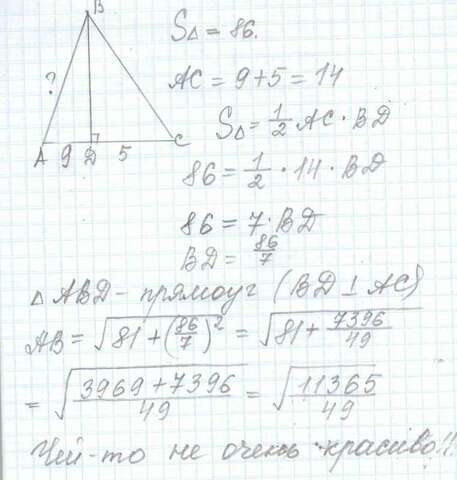 B
S△ = 86.
?
AC = 9+5 = 14
A 9 D 5 C
S△ = 1/2 AC · BD
86 = 1/2 · 14 · BD
86 = 7 · BD
BD = 86/7
△ ABD – прямоуг (BD ⊥ AC)
AB = √(81 + (86/7)²) = √(81 + 7396/49)
= √((3969 + 7396)/49) = √(11365/49)
Чей-то не очень красиво!!